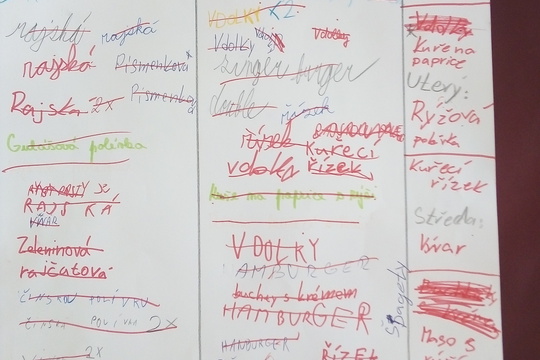 rajská rajská
rajská Písmenková
Rajská 2x Písmenková
Gulášová polévka
RAJSKÁ
KÝVAR
Zeleninová
rajčatová
ČÍNSKOU POLÍVKU
ČÍNSKA POLÍVKA 2X
2X
VDOLKY X2
Vdolky Vdolky
zinger burger
double řízek
řízek
Kuřecí
vdolky řízek
Kuře na paprice s rýží
VDOLKY
HAMBURGER
buchey s krémem
HAMBURGER
HAMBURGER
ŘÍZEK
Špagety
Vdolky
Kuře na
paprice
Úterý:
Rýžová
polívka
Kuřecí
řízek
Středa:
kývar
Maso s